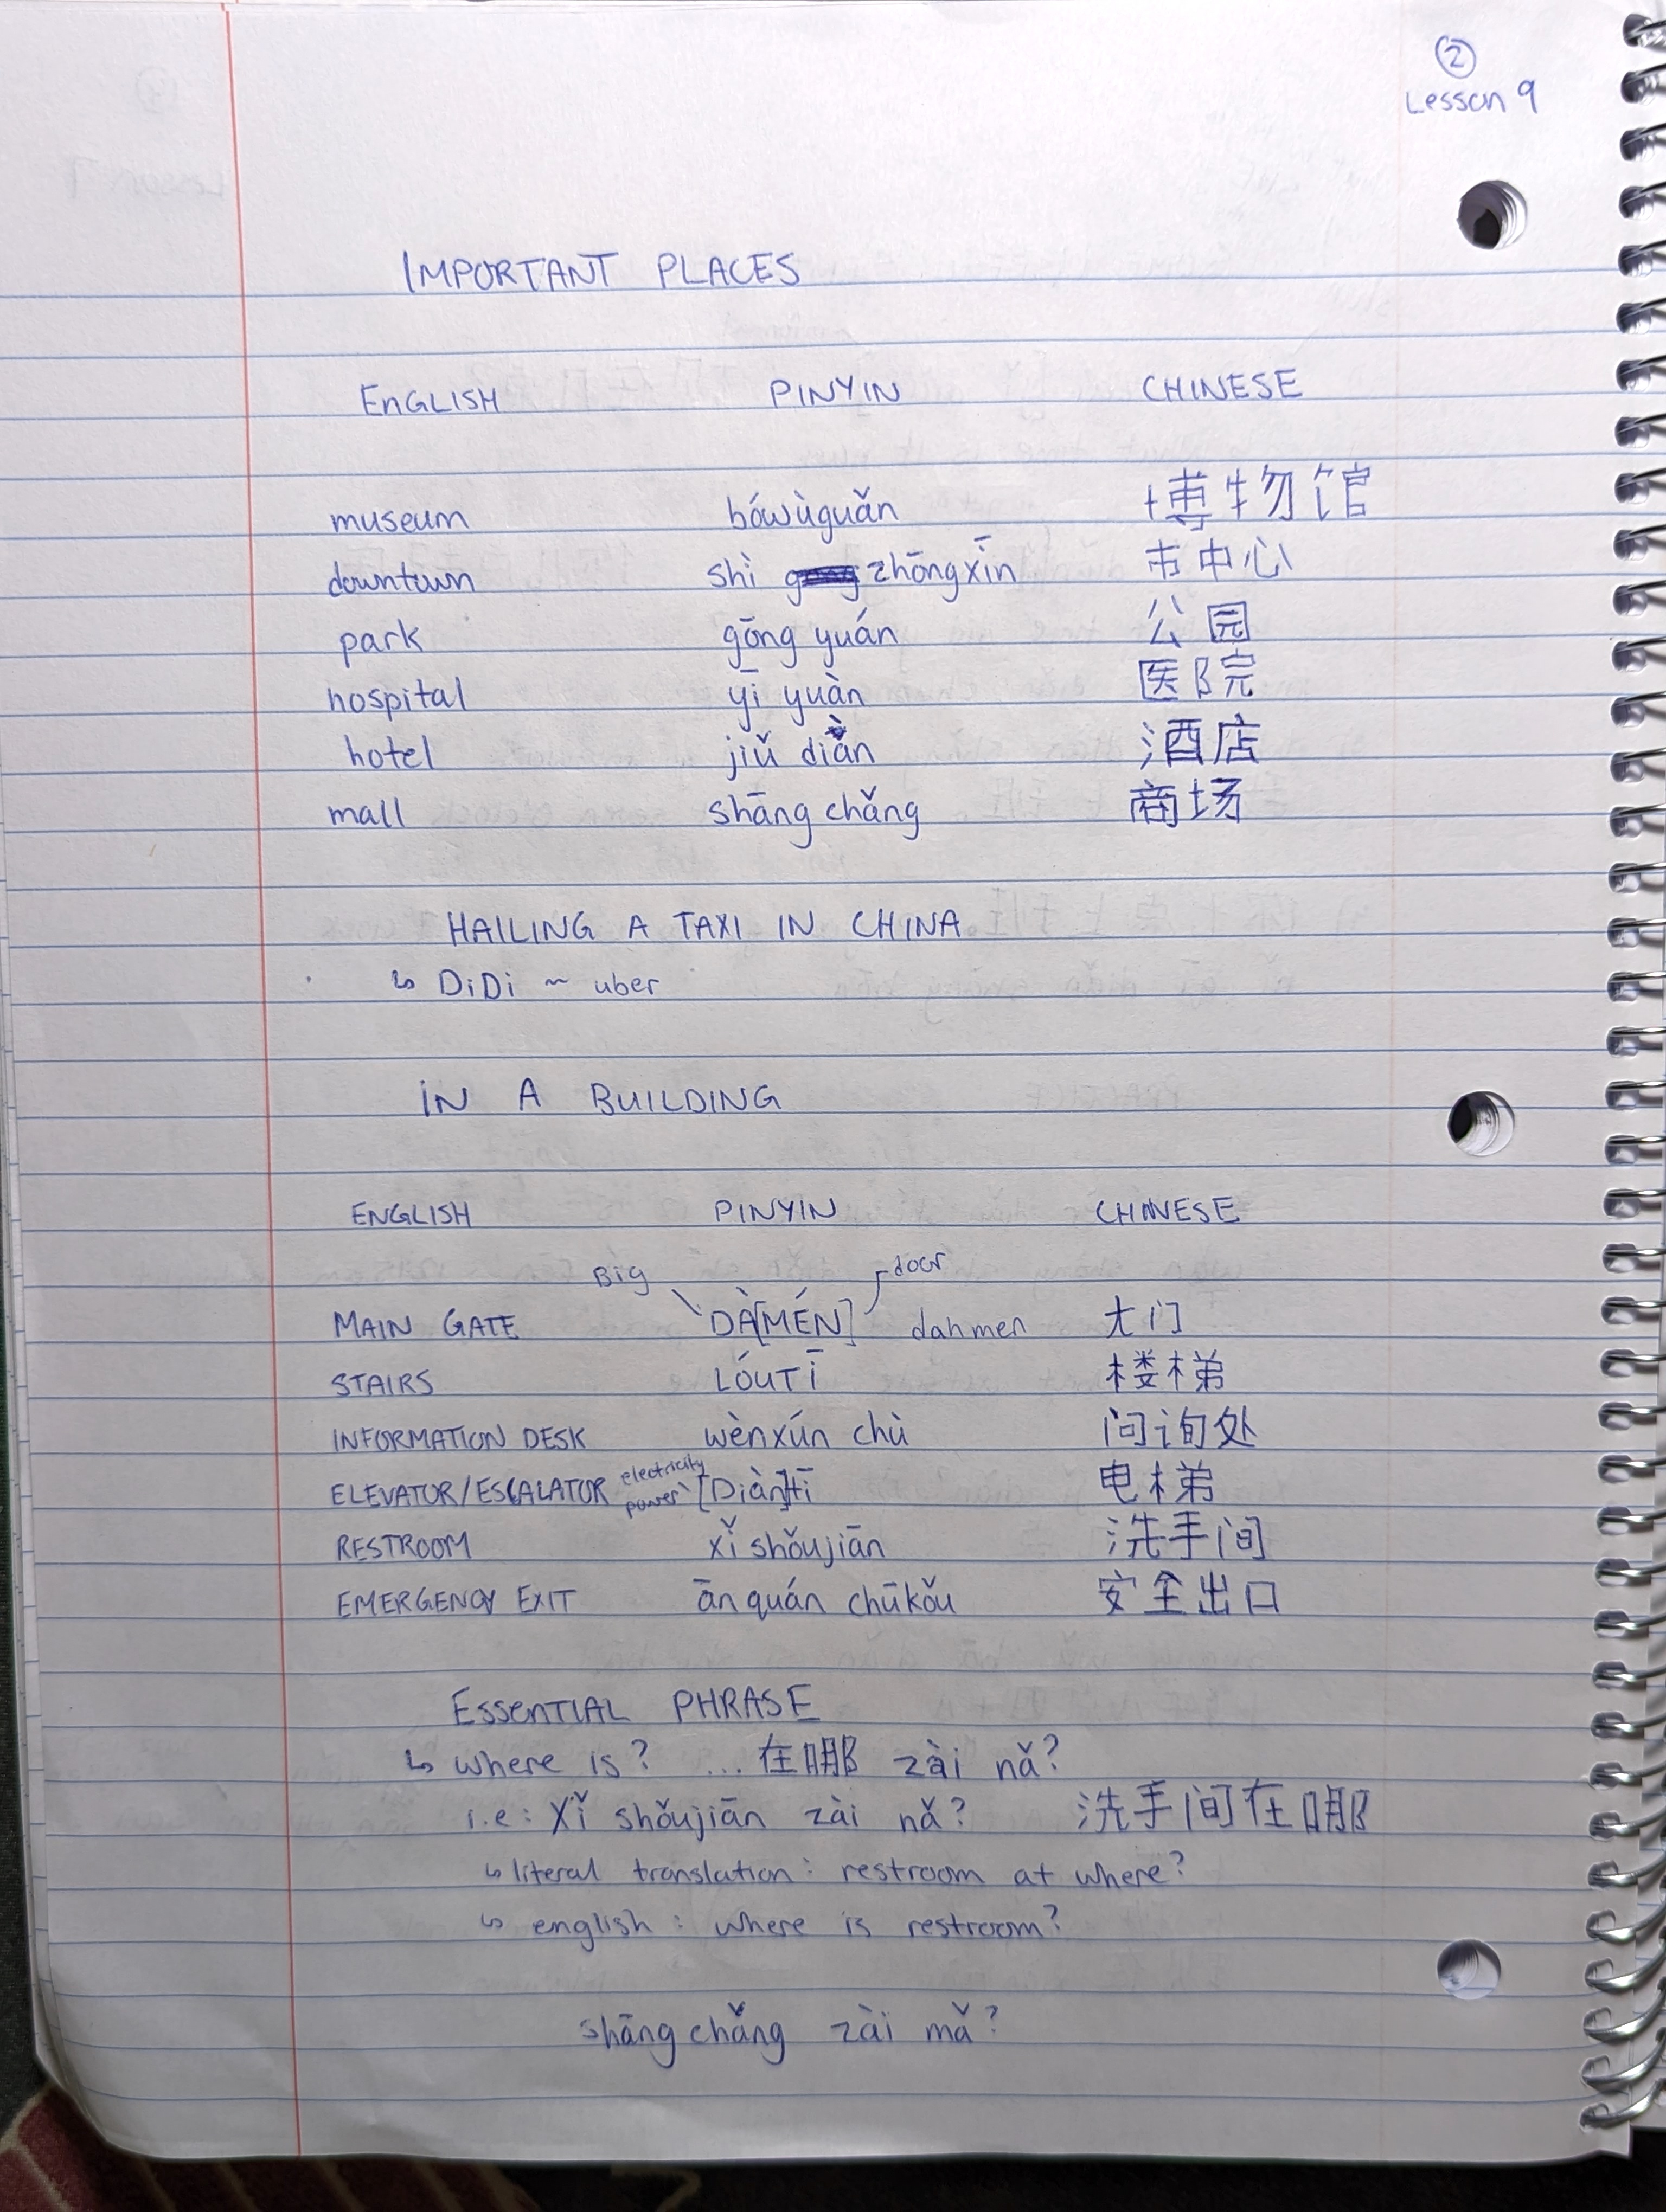 ②
Lesson 9
IMPORTANT PLACES
ENGLISH PINYIN CHINESE
museum bówùguǎn 博物馆
downtown shì zhōngxīn 市中心
park gōng yuán 公园
hospital yī yuàn 医院
hotel jiǔ diàn 酒店
mall shāng chǎng 商场
HAILING A TAXI IN CHINA
↳ DiDi ~ uber
IN A BUILDING
ENGLISH PINYIN CHINESE
Big door
MAIN GATE DÀ[MÉN] dahmen 大门
STAIRS LÓUTĪ 楼梯
INFORMATION DESK wènxún chù 问询处
ELEVATOR/ESCALATOR electricity power [Diàn]tī 电梯
RESTROOM xǐ shǒujiān 洗手间
EMERGENCY EXIT ān quán chūkǒu 安全出口
ESSENTIAL PHRASE
↳ where is? ...在哪 zài nǎ?
i.e: xǐ shǒujiān zài nǎ? 洗手间在哪
↳ literal translation: restroom at where?
↳ english: where is restroom?
shāng chǎng zài mǎ?